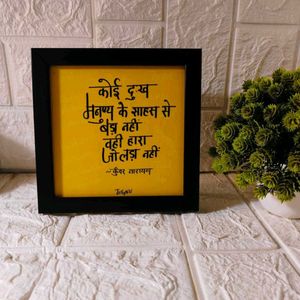 कोई दुःख
मनुष्य के साहस से
बड़ा नहीं
वही हारा
जो लड़ा नहीं
~कुँवर नारायण